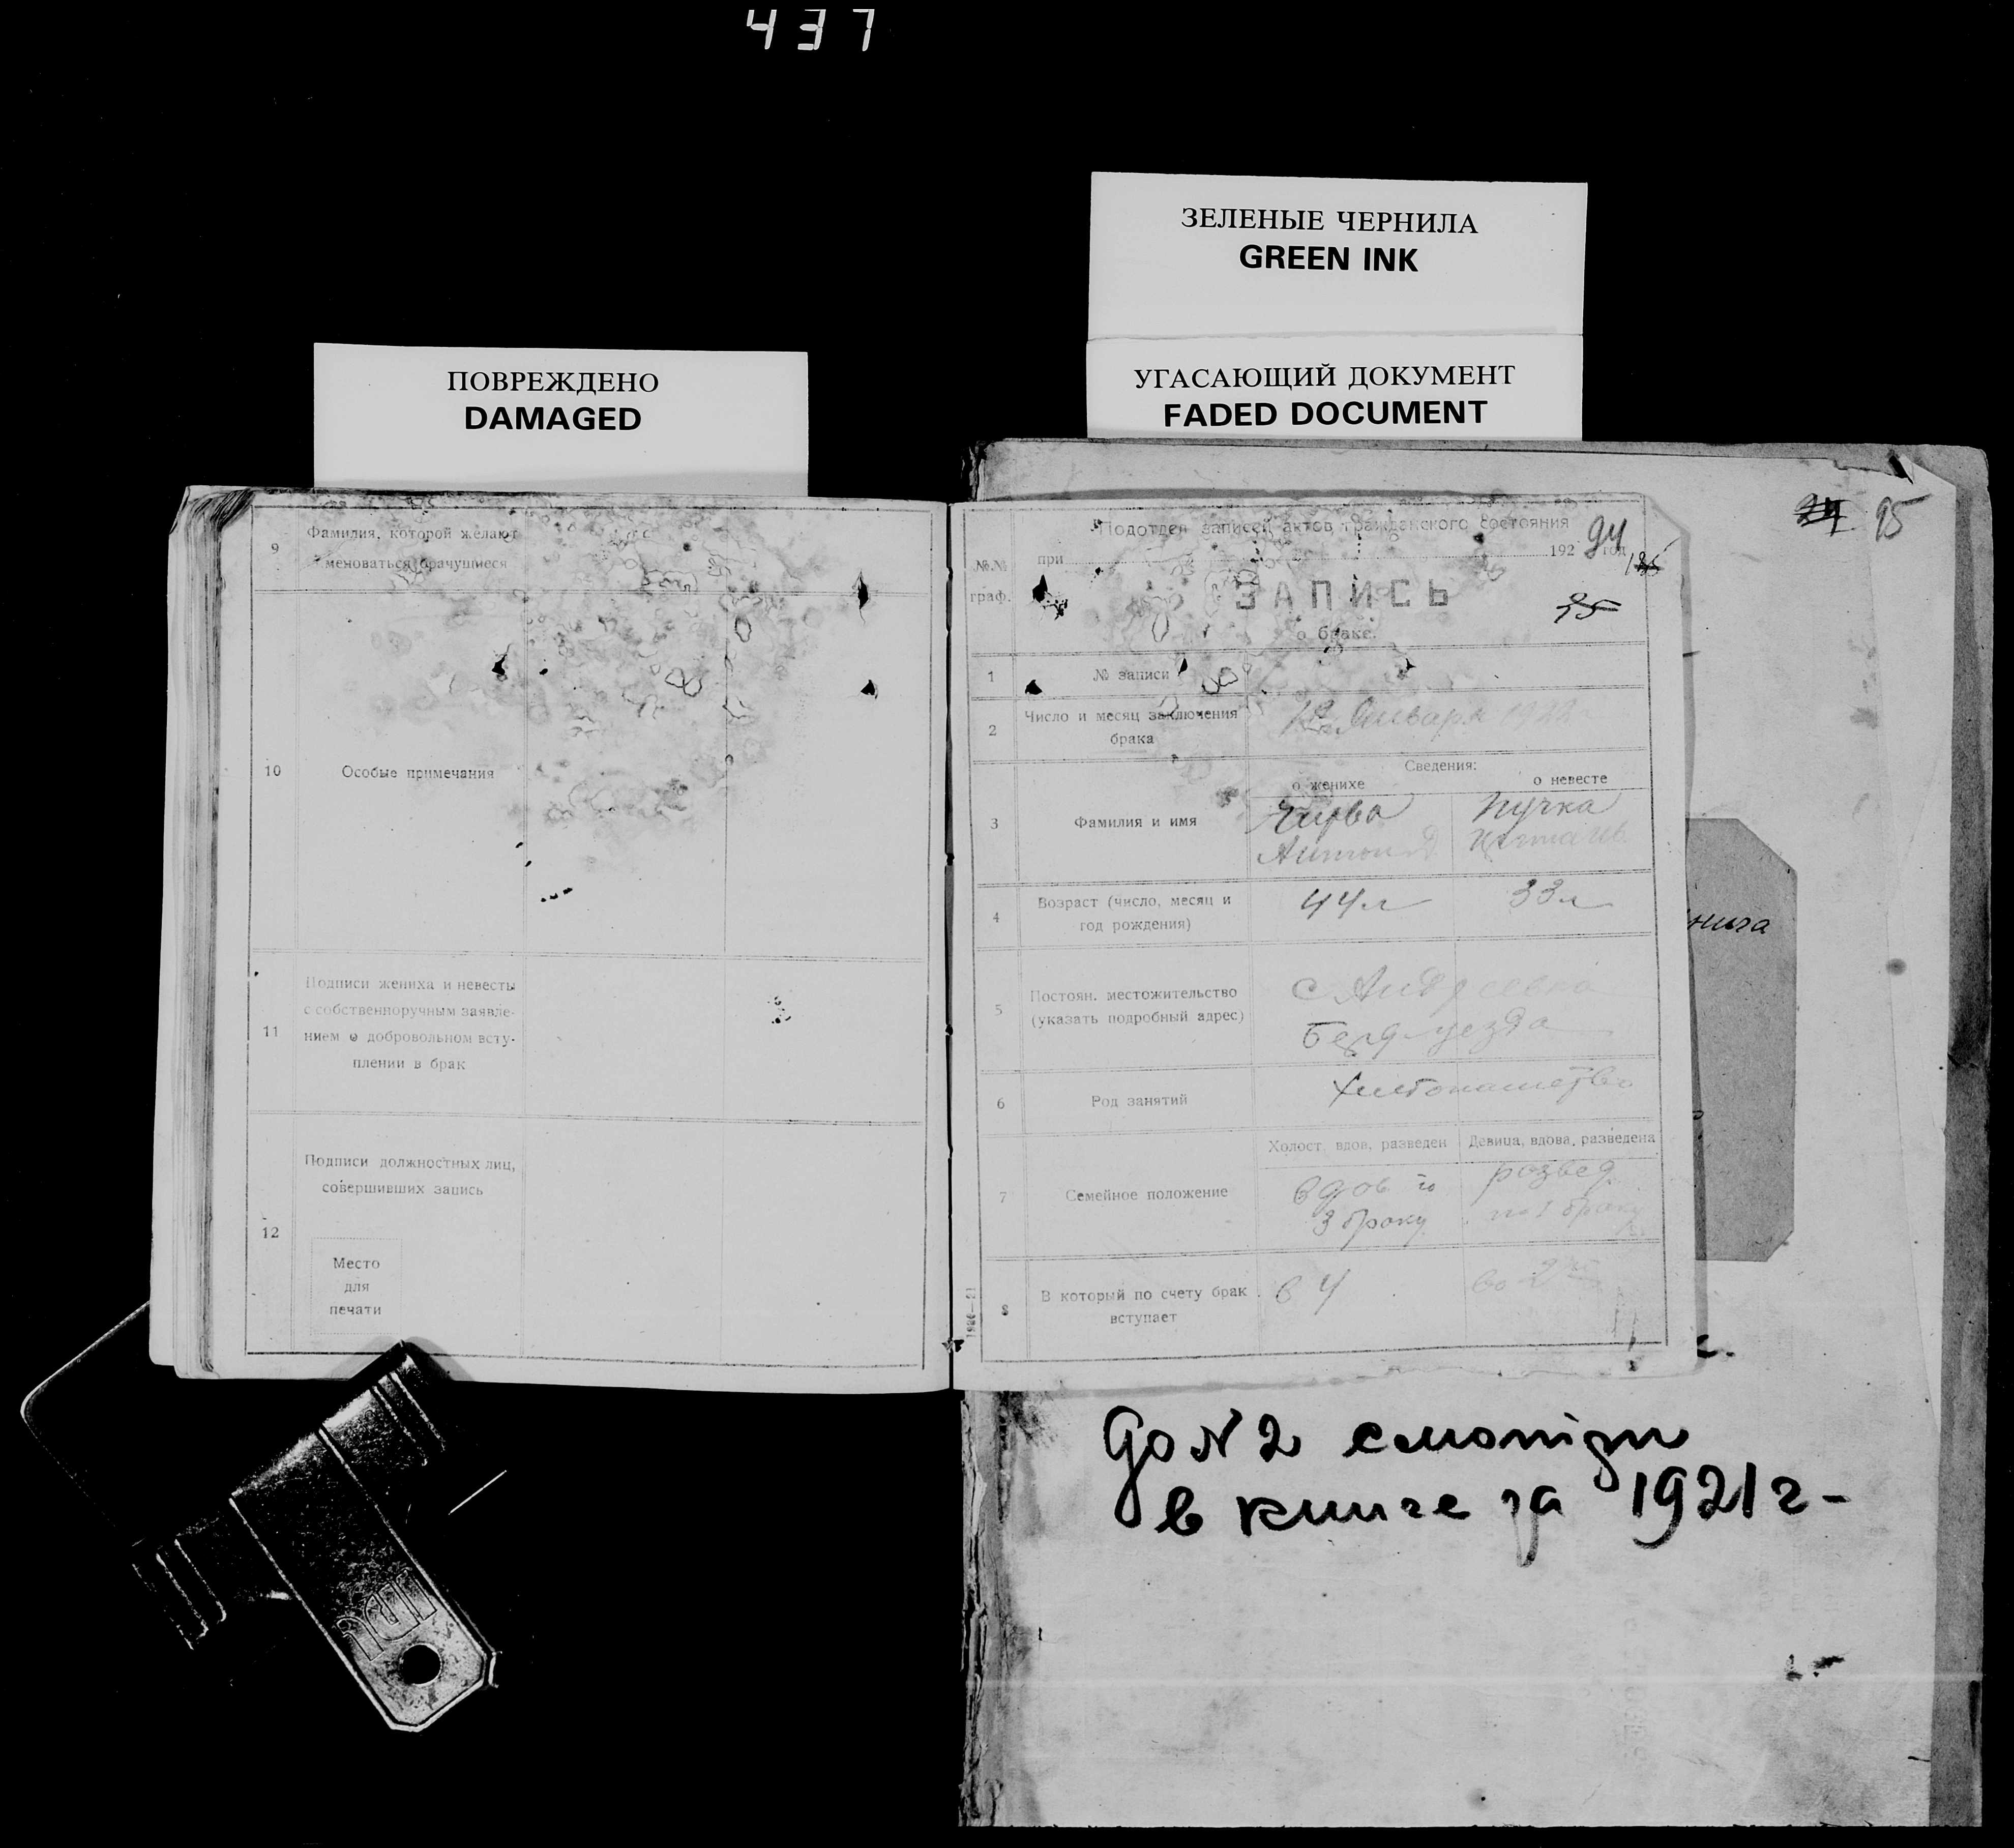 437
ЗЕЛЕНЫЕ ЧЕРНИЛА
GREEN INK
УГАСАЮЩИЙ ДОКУМЕНТ
FADED DOCUMENT
ПОВРЕЖДЕНО
DAMAGED
9
Фамилия, которой желают
меноваться брачущиеся
10
Особые примечания
11
Подписи жениха и невесты
с собственноручным заявле-
нием о добровольном всту-
плении в брак
12
Подписи должностных лиц,
совершивших запись
Место
для
печати
95
Подотдел записей актов гражданского состояния
94
при 192 год
№№
граф.
ЗАПИСЬ
о браке.
95
1
№ записи
2
Число и месяц заключения
брака
Января 1922
Сведения:
о женихе
о невесте
3
Фамилия и имя
Чирва
Пучка
4
Возраст (число, месяц и
год рождения)
44 л
33 л
5
Постоян. местожительство
(указать подробный адрес)
с Андреевка
Берд уезда
6
Род занятий
Хлебопашество
7
Семейное положение
Холост, вдов, разведен
Девица, вдова, разведена
вдов по
3 браку
развед
по 1 браку
8
В который по счету брак
вступает
в 4
во 2
нига
До N 2 смотри
в книге за 1921 г-